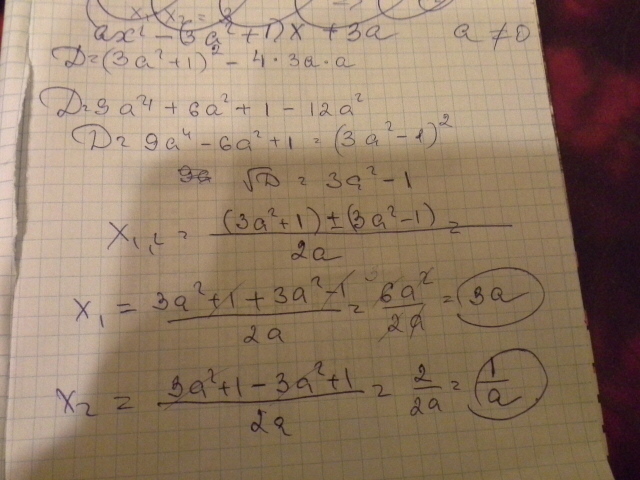 x₁x₂ =
ax² - (3a²+1)x + 3a a ≠ 0
D=(3a²+1)² - 4·3a·a
D=9a⁴ + 6a² + 1 - 12a²
D= 9a⁴ - 6a² + 1 = (3a² - 1)²
√D = 3a² - 1
x₁,₂ = \frac{(3a²+1) ± (3a²-1)}{2a} =
x₁ = \frac{3a²+1+3a²-1}{2a} = \frac{6a²}{2a} = 3a
x₂ = \frac{3a²+1-3a²+1}{2a} = \frac{2}{2a} = \frac{1}{a}